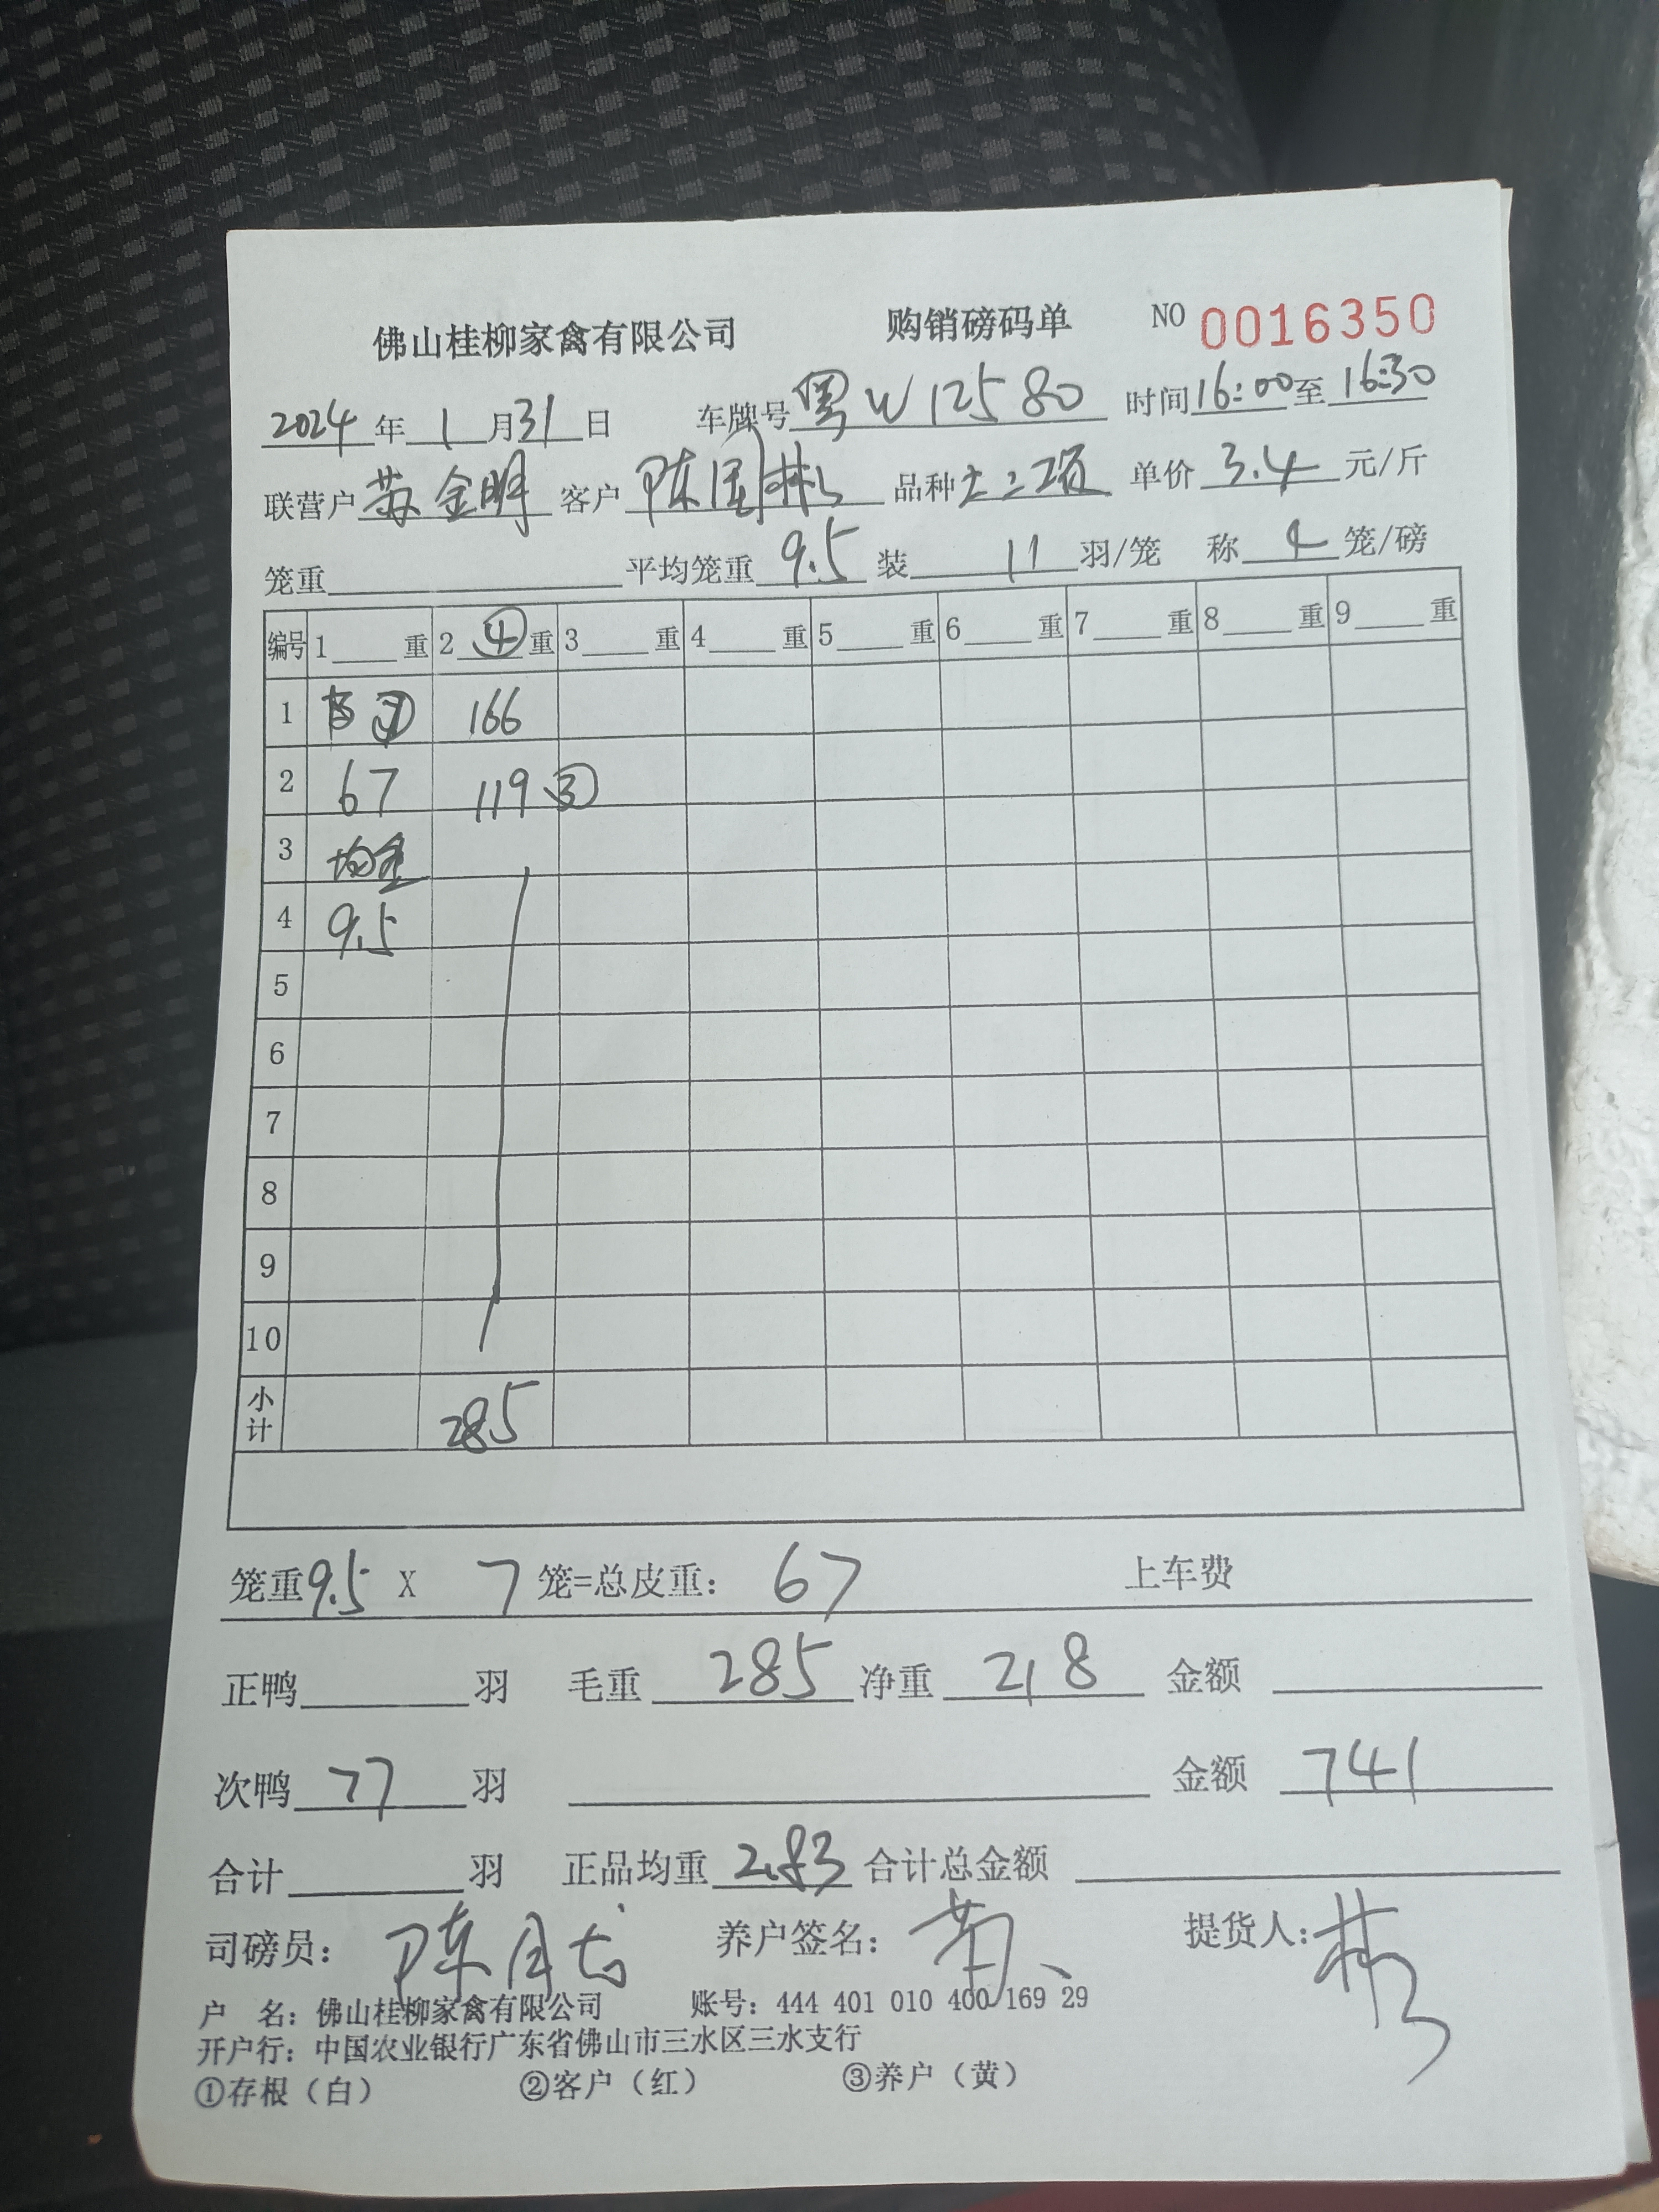 佛山桂柳家禽有限公司 购销磅码单 NO 0016350
2024年1月31日 车牌号粤W12580 时间16:00至16:30
联营户苏金明 客户陈国彬 品种土二 单价3.4元/斤
笼重 平均笼重9.5 装11羽/笼 称4笼/磅
编号 1 重 2 ④ 重 3 重 4 重 5 重 6 重 7 重 8 重 9 重
1 ⑦ 166
2 67 119 ③
3 均重
4 9.5
5
6
7
8
9
10
小计 285
笼重9.5 X 7笼=总皮重: 67 上车费
正鸭 羽 毛重285 净重218 金额
次鸭77羽 金额741
合计 羽 正品均重2.83 合计总金额
司磅员: 陈 养户签名: 提货人: 彬
户 名: 佛山桂柳家禽有限公司 账号: 444 401 010 400 169 29
开户行: 中国农业银行广东省佛山市三水区三水支行
①存根（白） ②客户（红） ③养户（黄）